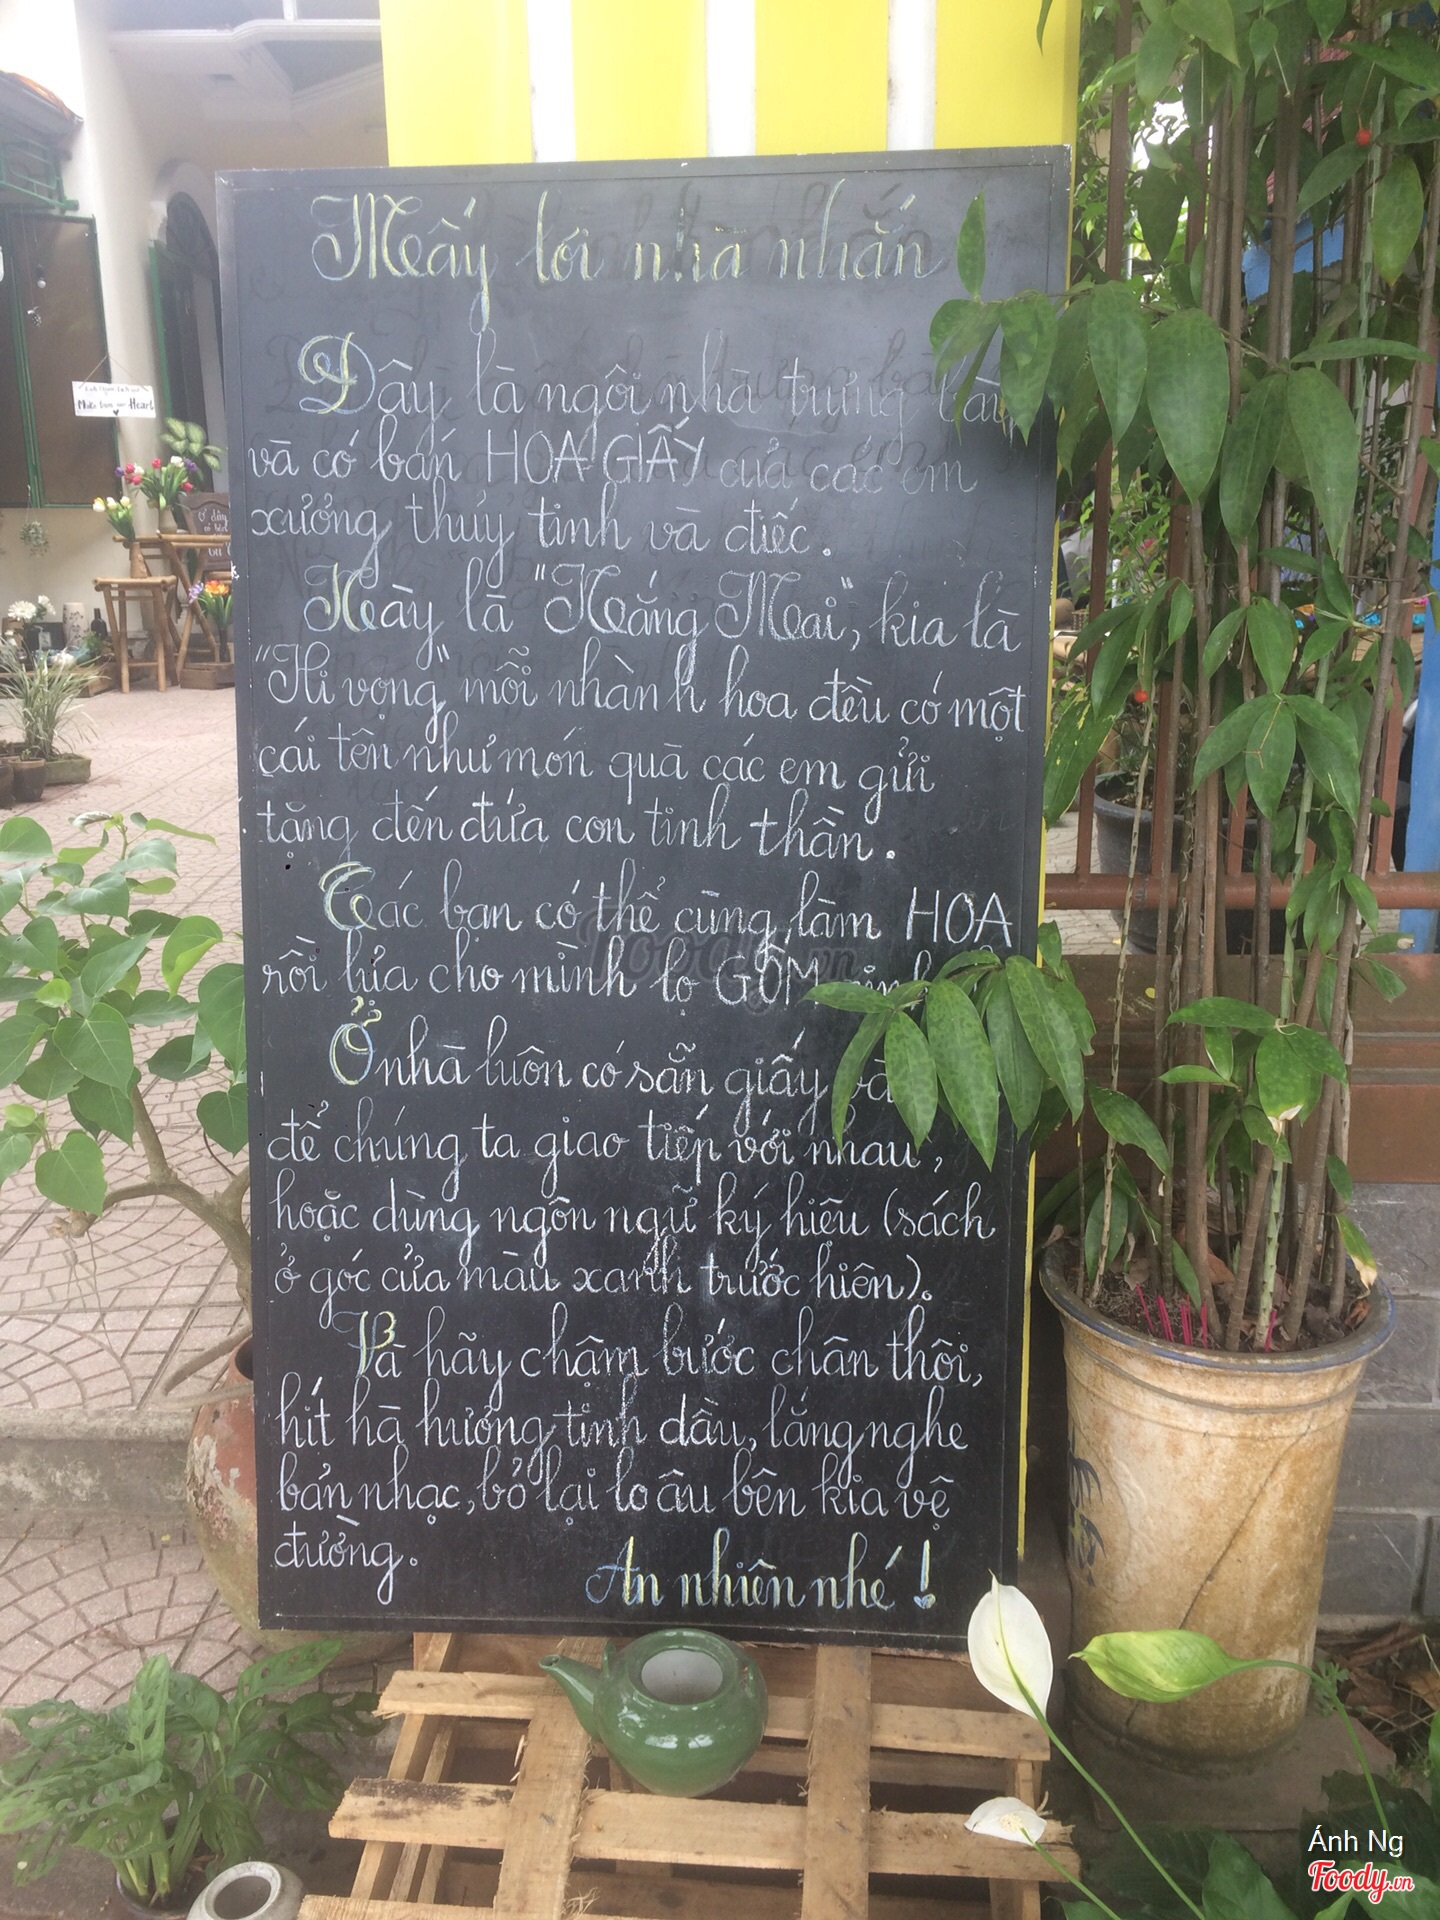 Mấy lời nhà nhắn
Đây là ngôi nhà trưng bày
và có bán HOA GIẤY của các em
xưởng thủy tinh và điếc.
Này là "Nắng Mai", kia là
"Hi vọng" mỗi nhành hoa đều có một
cái tên như món quà các em gửi
tặng đến đứa con tinh thần.
Các bạn có thể cùng làm HOA
rồi lựa cho mình lọ GỐM
Ở nhà luôn có sẵn giấy
để chúng ta giao tiếp với nhau,
hoặc dùng ngôn ngữ ký hiệu (sách
ở góc cửa màu xanh trước hiên).
Và hãy chậm bước chân thôi,
hít hà hương tinh dầu, lắng nghe
bản nhạc, bỏ lại lo âu bên kia vệ
đường.
An nhiên nhé!
Make from our Heart
Ánh Ng
Foody.vn